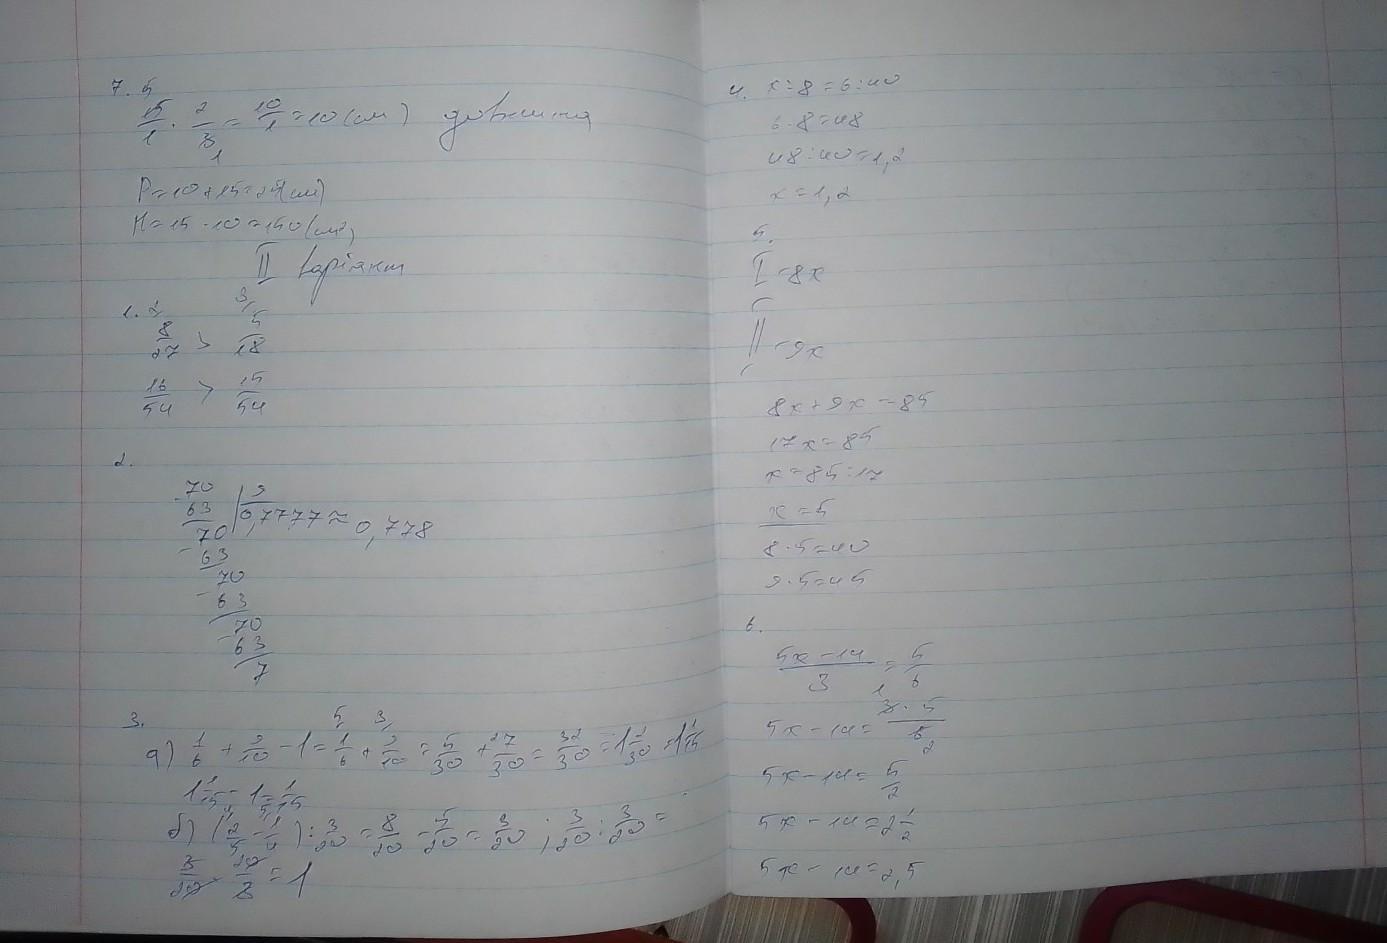 7.
15/1 · 2/3 = 10/1 = 10 (см) довжина
P = 10 + 15 = 25 (см)
H = 15 · 10 = 150 (см²)
II варіант
1.
8/27 > 5/18
16/54 > 15/54
2.
70 | 9
63 0,7777 ≈ 0,778
70
- 63
70
- 63
70
- 63
7
3.
а) 1/6 + 9/10 - 1 = 1/6 + 9/10 = 5/30 + 27/30 = 32/30 = 1 2/30 = 1 1/15
1 1/15 - 1 = 1/15
б) (2/5 - 1/4) : 3/20 = 8/20 - 5/20 = 3/20 ; 3/20 : 3/20 =
3/20 · 20/3 = 1
4. x : 8 = 6 : 40
6 · 8 = 48
48 : 40 = 1,2
x = 1,2
5.
I = 8x
II = 9x
8x + 9x = 85
17x = 85
x = 85 : 17
x = 5
8 · 5 = 40
9 · 5 = 45
6.
5x - 14/3 = 5/6
5x - 14 = 3 · 5/6
5x - 14 = 5/2
5x - 14 = 2 1/2
5x - 14 = 2,5